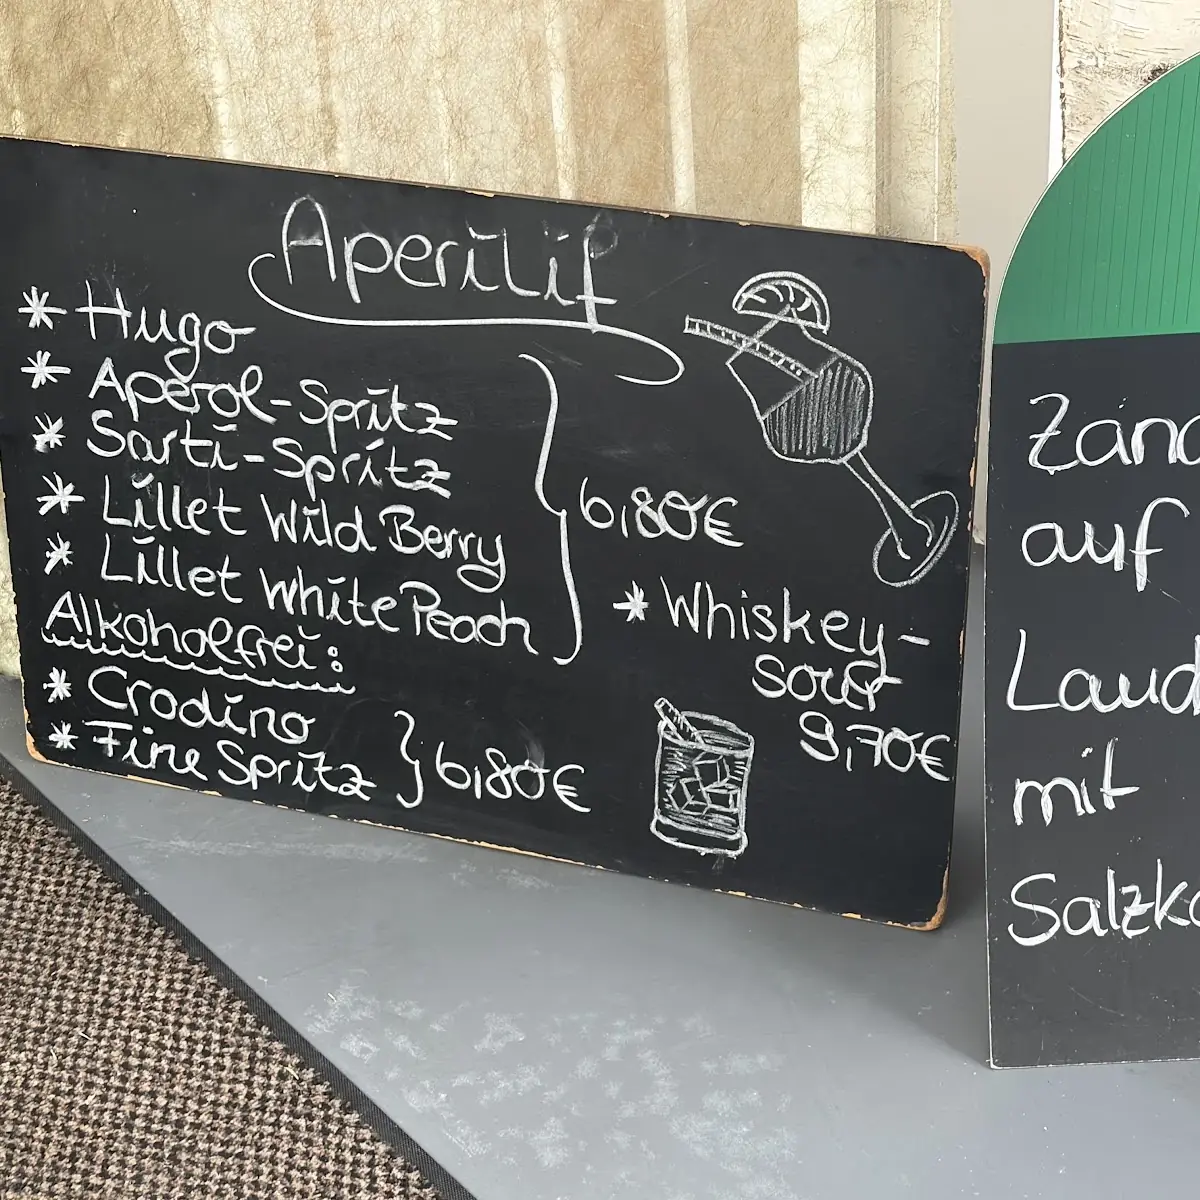 Aperitif
* Hugo
* Aperol-Spritz
* Sarti-Spritz
* Lillet Wild Berry
* Lillet White Peach
6,80€
Alkoholfrei:
* Crodino
* Fine Spritz
6,80€
* Whiskey-
sour
9,70€
Zand
auf
Laud
mit
Salzka